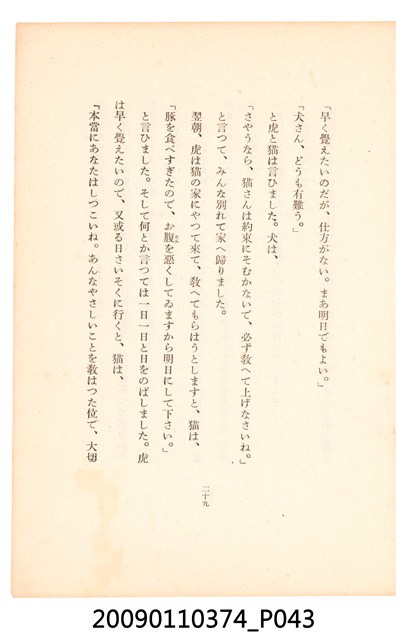 「早く覺えたいのだが、仕方がない。まあ明日でもよい。」
「犬さん、どうも有難う。」
と虎と猫は言ひました。犬は、
「さやうなら、猫さんは約束にそむかないで、必ず敎へて上げなさいね。」
と言つて、みんな別れて家へ歸りました。
翌朝、虎は猫の家にやつて來て、敎へてもらはうとしますと、猫は、
「豚を食べすぎたので、お腹を惡くしてゐますから明日にして下さい。」
と言ひました。そして何とか言つては一日一日と日をのばしました。虎
は早く覺えたいので、又或る日さいそくに行くと、猫は、
「本當にあなたはしつこいね。あんなやさしいことを敎はつた位で、大切
二十九
20090110374_P043